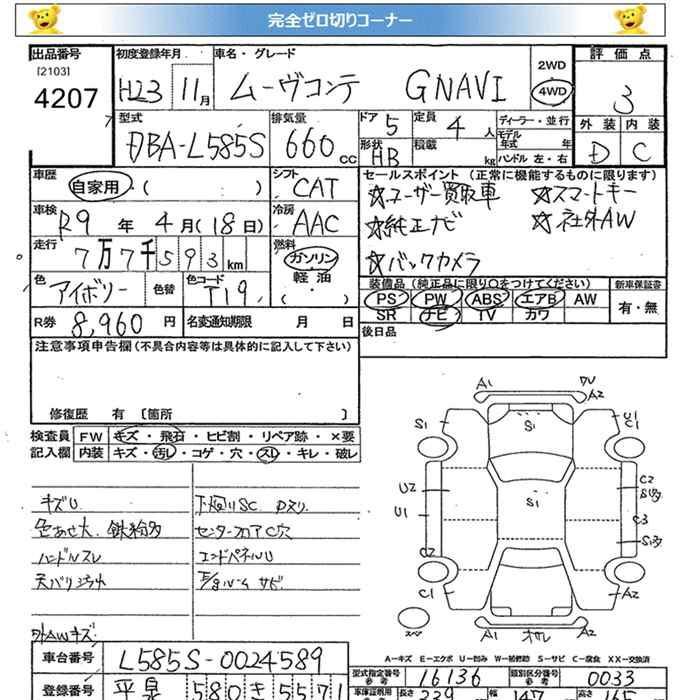 完全ゼロ切りコーナー
出品番号 初度登録年月 車名・グレード 2WD 評価点
[2103]
4207 H23 11月 ムーヴコンテ GNAVI 4WD 3
型式 排気量 ドア 5 定員 4人 ディーラー・並行 外装 内装
DBA-L585S 660cc 形状 HB 積載 kg モデル年式 年 D C
ハンドル 左・右
車歴 自家用・( ) シフト CAT セールスポイント (正常に機能するものに限ります)
☆ユーザー買取車 ☆スマートキー
車検 R9年 4月(18日) 冷房 AAC ☆純正ナビ ☆社外AW
走行 7万7千593km 燃料 ガソリン・軽油・( ) ☆バックカメラ
色 アイボリー 色替 色コード T19 装備品 (純正品に限り○をつけてください) 新車保証書
PS PW ABS エアB AW 有・無
SR ナビ TV カワ
R券 8,960円 名変通知期限 月 日 後日品
注意事項申告欄 (不具合内容等は具体的に記入して下さい)
修復歴 有 [箇所 ]
検査員 FW キズ・飛石・ヒビ割・リペア跡・×要
記入欄 内装 キズ・汚レ・コゲ・穴・スレ・キレ・破レ
キズU 下廻りSC
色あせ大. 鉄粉多 センターフロアC穴
ハンドルスレ エンドパネルU
サビ
外AWキズ
A1 A2
S1 S1 U1 C1
U2 S1 C2
U1 C3
C2
C1 A2
スペア A1 A2
A-キズ E-エクボ U-凹み W-補修跡 S-サビ C-腐食 XX-交換済
車台番号 L585S-0024589
型式指定番号 参考 16136 類別区分番号 参考 0033
登録番号 平泉 580 き 5571
車体証明用 参考 長さ 339 幅 147 高さ 165